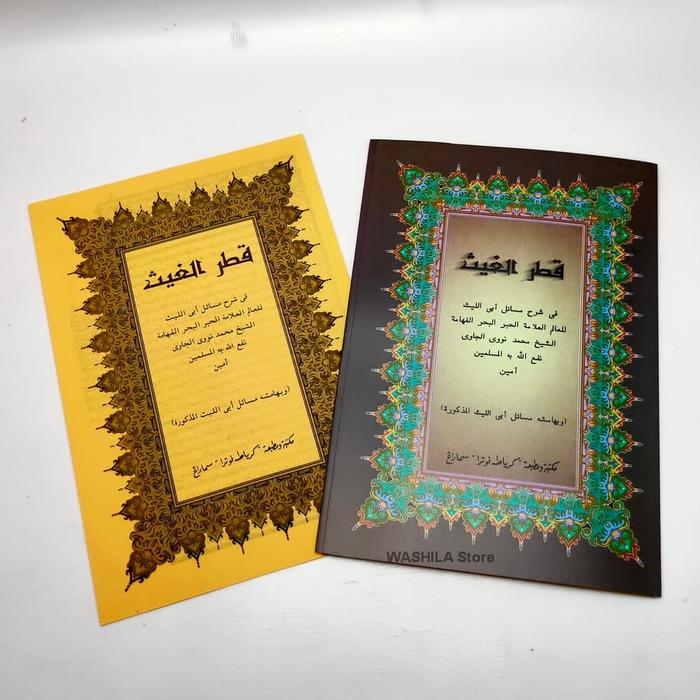 قطر الغيث
فى شرح مسائل أبى الليث
للعالم العلامة الحبر البحر الفهامة
الشيخ محمد نووى الجاوى
نفع الله به المسلمين
أمين
(وبهامشه مسائل أبى الليث المذكورة)
مكتبة ومطبعة "كرياطه فوترا" سماراڠ
قطر الغيث
فى شرح مسائل أبى الليث
للعالم العلامة الحبر البحر الفهامة
الشيخ محمد نووى الجاوى
نفع الله به المسلمين
أمين
(وبهامشه مسائل أبى الليث المذكورة)
مكتبة ومطبعة "كرياطه فوترا" سماراڠ
WASHILA Store